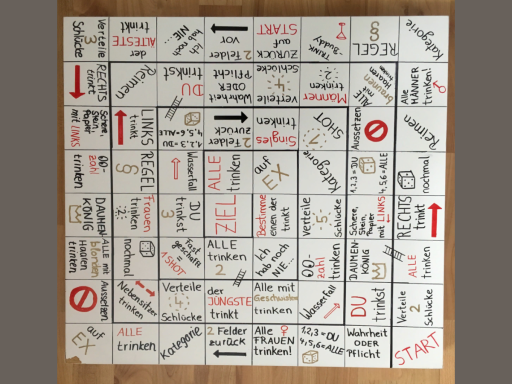 Verteile
3
Schlücke
der
ÄLTESTE
trinkt
Ich
hab noch
NIE...
2 Felder
vor
ZURÜCK
auf
START
TRINK
Buddy
§
REGEL
Kategorie
RECHTS
trinkt
Reimen
DU
trinkst
Wahrheit
ODER
Pflicht
verteile
4
Schlücke
2
Männer
trinken
ALLE
mit
braunen
Haaren
trinken
Alle
MÄNNER
trinken!
Schere,
Stein,
Papier
mit LINKS
LINKS
trinkt
1,2,3=DU
4,5,6=ALLE
2 Felder
zurück
Singles
trinken
SHOT
1
Aussetzen
Reimen
00-
zahl
trinken
REGEL
§
Wasserfall
ALLE
trinken
auf
EX
Kategorie
1,2,3=DU
4,5,6=ALLE
nochmal
DAUMEN
KÖNIG
Frauen
2
trinken
DU
trinkst
3
ZIEL
Bestimme
einen der
trinkt
verteile
5
Schlücke
Schere,
Stein,
Papier
mit LINKS
RECHTS
trinkt
ALLE mit
blonden
Haaren
trinken
nochmal
Fast
geschafft
=
1 SHOT
ALLE
trinken
2
Ich
hab noch
NIE...
00-
zahl
trinken
DAUMEN-
KÖNIG
ALLE
trinken
Aussetzen
Nebensitzer
trinken
Verteile
4
Schlücke
der
JÜNGSTE
trinkt
Alle mit
Geschwistern
trinken
Wasserfall
DU
trinkst
Verteile
2
Schlücke
auf
EX
ALLE
trinken
Kategorie
2 Felder
zurück
Alle
FRAUEN
trinken!
1,2,3=DU
4,5,6=ALLE
Wahrheit
ODER
Pflicht
START